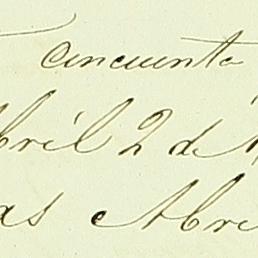 cincuenta
Abril 2 de
as Abre